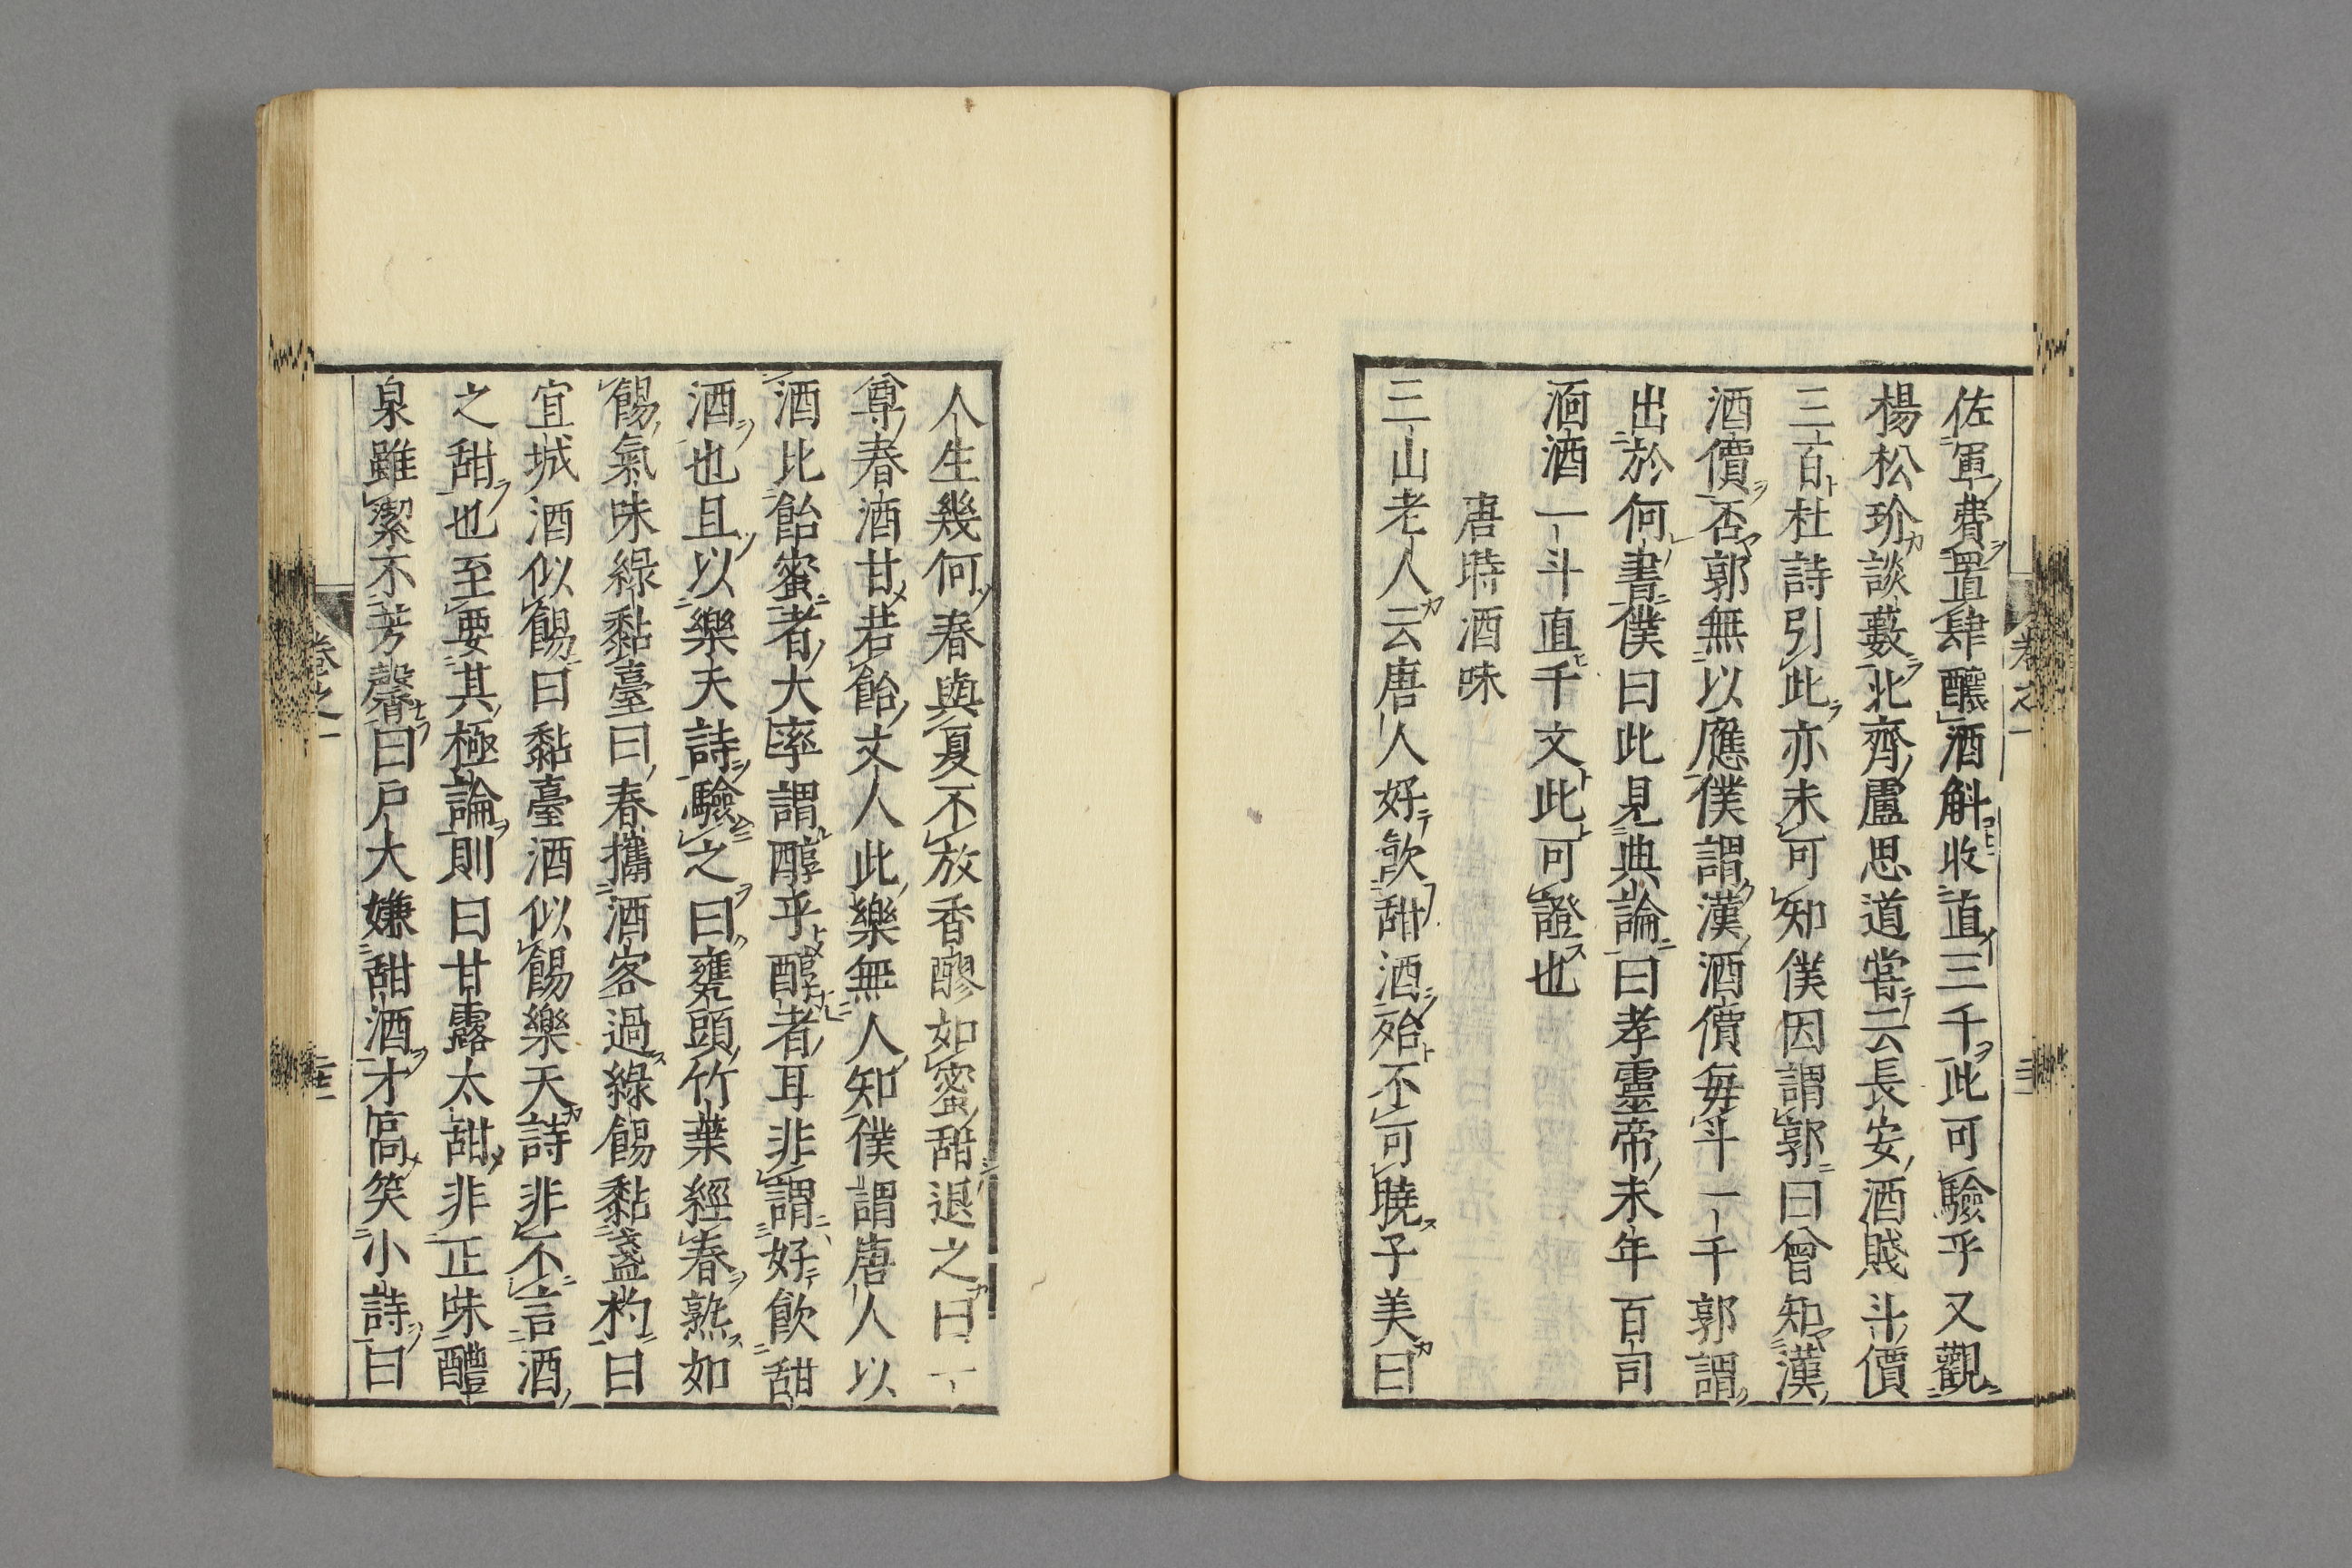 佐軍費置肆釀酒斛收直三千此可驗乎又觀
楊松玠談藪北齊盧思道嘗云長安酒賤斗價
三百杜詩引此亦未可知僕因謂郭曰曾知漢
酒價否郭無以應僕謂漢酒價每斗一千郭謂
出於何書僕曰此見典論曰孝靈帝末年百司
湎酒一斗直千文此可證也
唐時酒味
三山老人云唐人好飮甜酒殆不可曉子美曰
人生幾何春與夏不放香醪如蜜甜退之曰一
尊春酒甘若飴丈人此樂無人知僕謂唐人以
酒比飴蜜者大率謂醇乎醇者耳非謂好飮甜
酒也且以樂天詩驗之曰甕頭竹葉經春熟如
餳氣味綠黏臺曰春攜酒客過綠餳黏盞杓曰
宜城酒似餳曰黏臺酒似餳樂天詩非不言酒
之甜也至要其極論則曰甘露太甜非正味醴
泉雖潔不芳馨曰戶大嫌甜酒才高笑小詩曰
卷之一